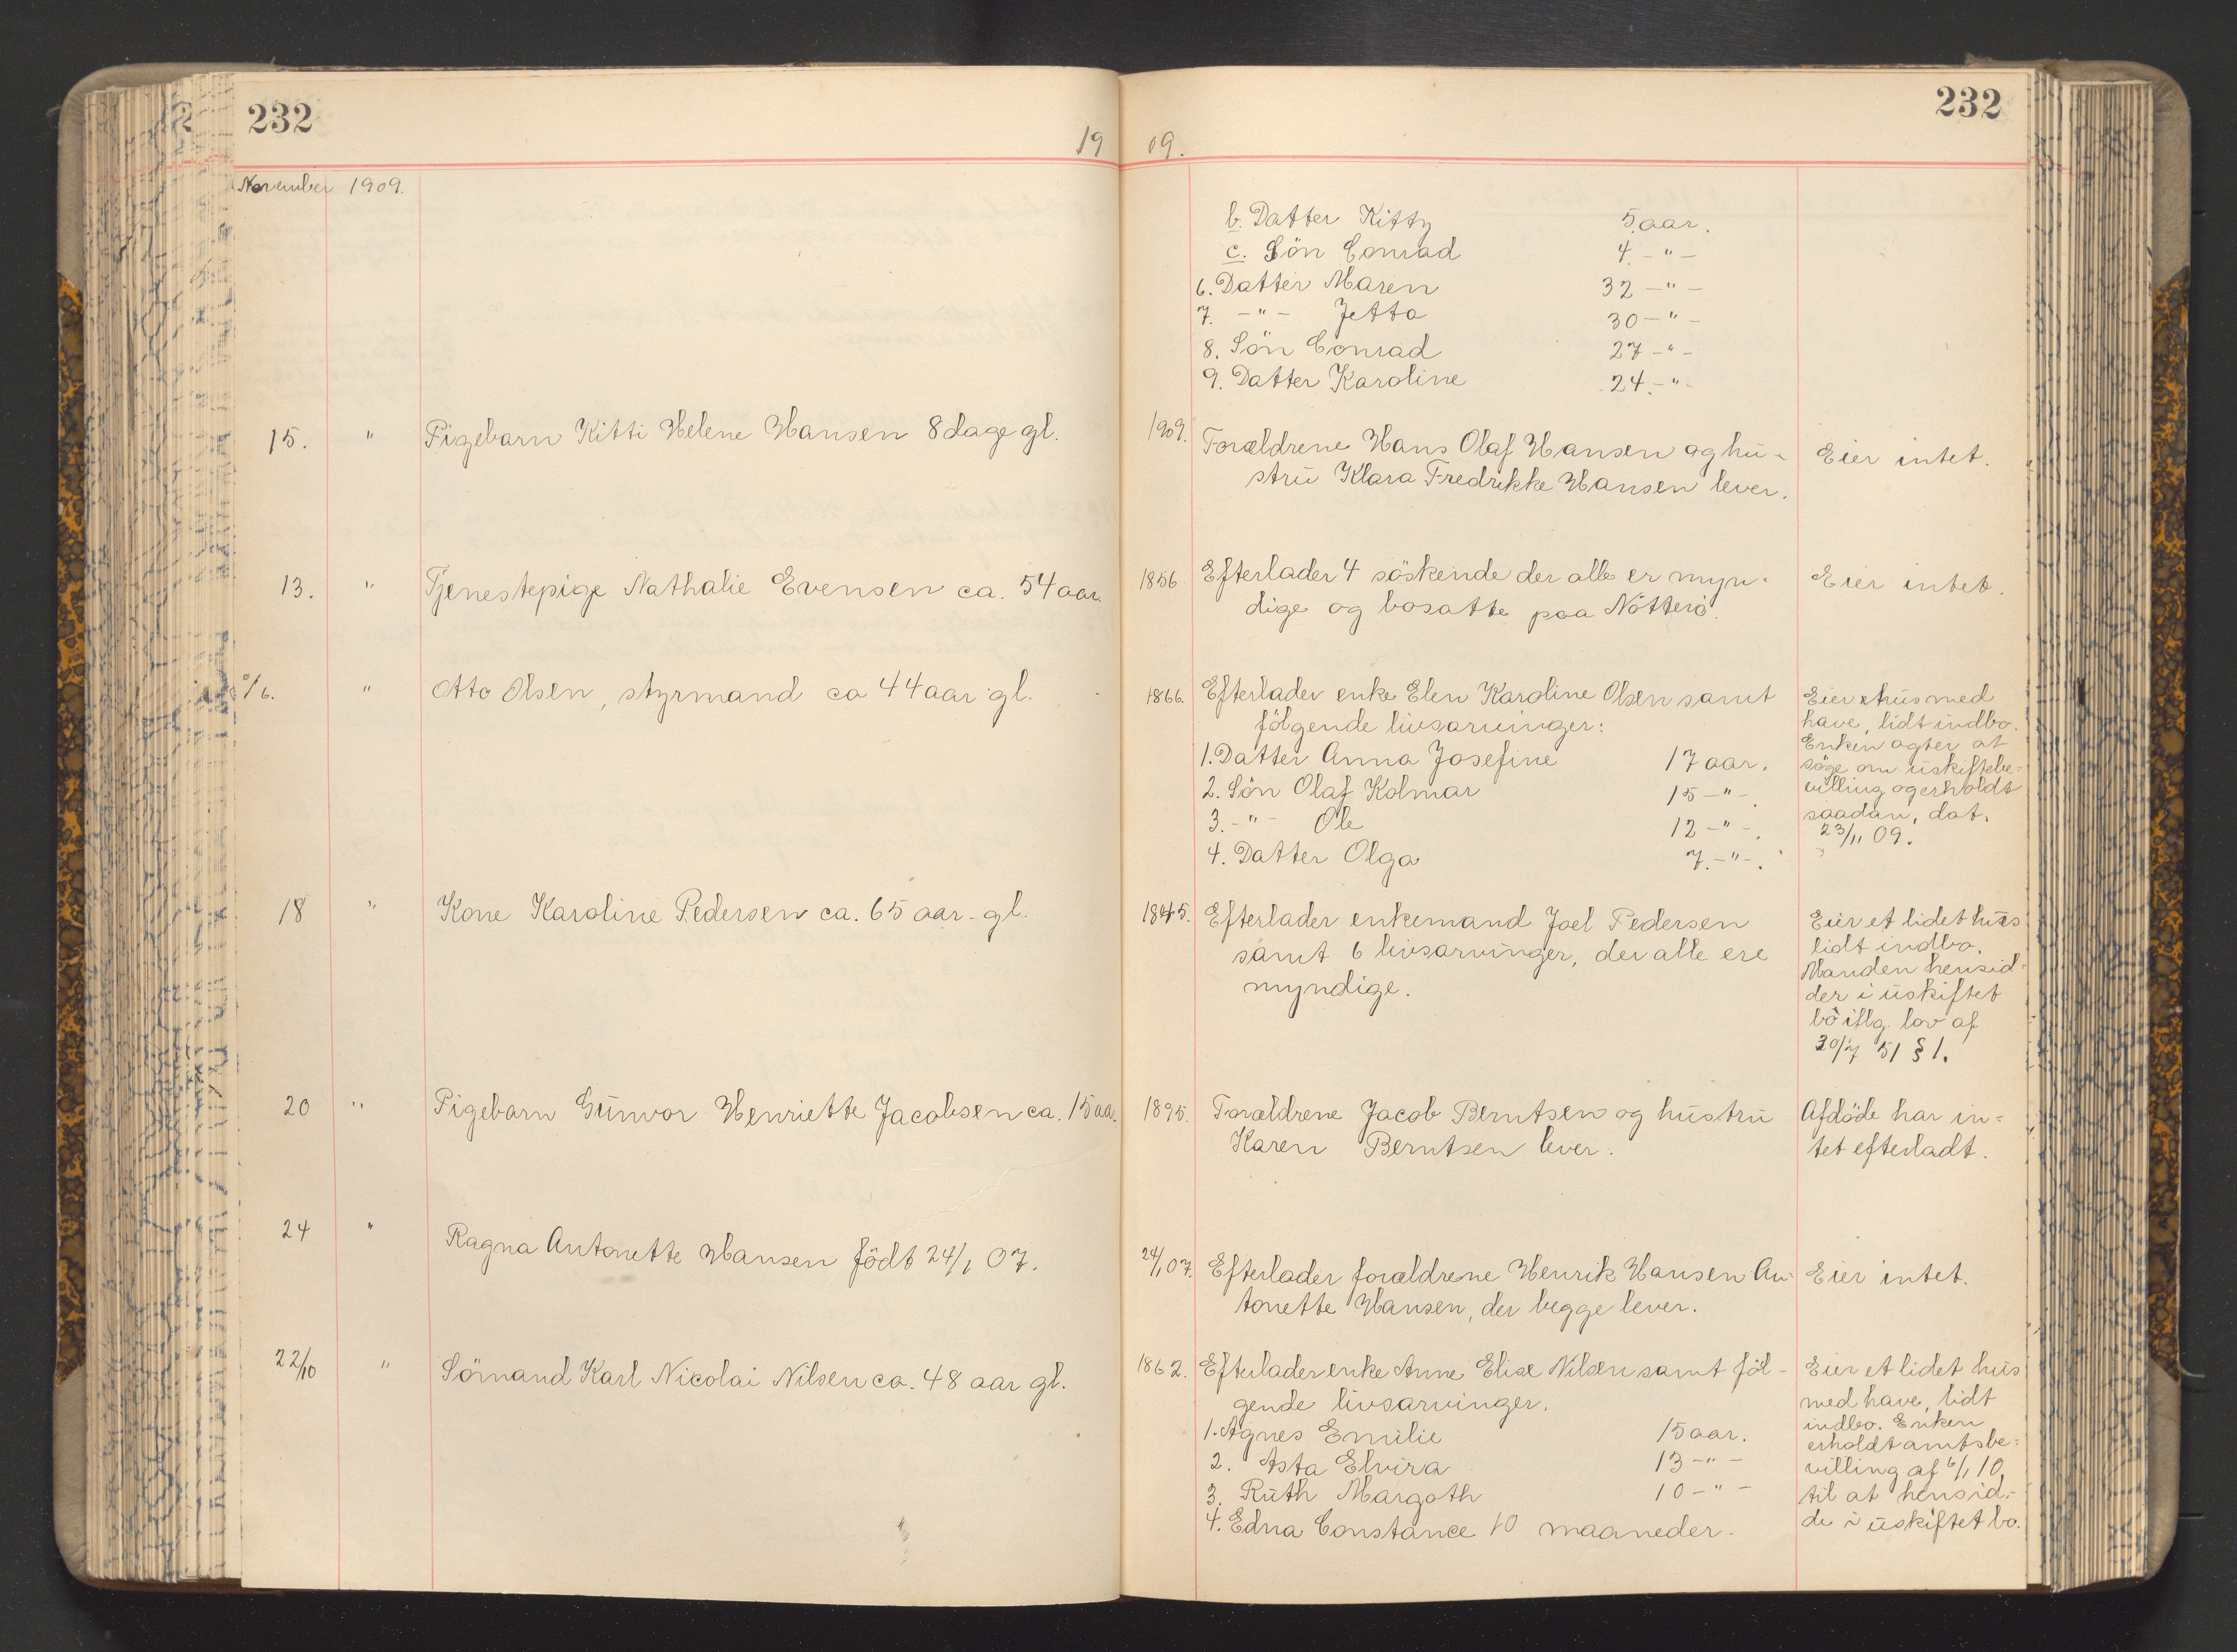 232
232
19 09.
November 1909.
b. Datter Kitty 5 aar.
c. Sön Conrad 4 - " -
6. Datter Maren 32 - " -
7. - " - Jetta 30 - " -
8. Sön Conrad 27 - " -
9. Datter Karoline 24 - " -
15. " Pigebarn Kitti Helene Hansen 8 dage gl. 1909. Forældrene Hans Olaf Hansen og hu- Eier intet.
stru Klara Fredrikke Hansen lever.
13. " Tjenestepige Nathalie Evensen ca. 54 aar. 1856 Efterlader 4 söskende der alle er myn- Eier intet.
dige og bosatte paa Nötterö.
/6. " Otto Olsen, styrmand ca 44 aar gl. 1866. Efterlader enke Elen Karoline Olsen samt Eier et hus med
fölgende livsarvinger: have, lidt indbo.
Enken agter at
1. Datter Anna Josefine 17 aar. söge om uskiftebe-
2. Sön Olaf Kolmar 15 - " -. villing og erholdt
3. - " - Ole 12 - " -. saadan, dat.
4. Datter Olga 7. - " -. 23/11 09.
18 " Kone Karoline Pedersen ca. 65 aar gl. 1845. Efterlader enkemand Joel Pedersen Eier et lidet hus
samt 6 livsarvinger, der alle ere lidt indbo.
myndige. Manden hensid-
der i uskiftet
bo iflg. lov af
30/7 51 § 1.
20 " Pigebarn Gunvor Henriette Jacobsen ca. 15 aar. 1895. Forældrene Jacob Berntsen og hustru Afdöde har in-
Karen Berntsen lever. tet efterladt.
24 " Ragna Antonette Hansen födt 24/1 07. 24/1 07. Efterlader forældrene Henrik Hansen An- Eier intet.
tonette Hansen, der begge lever.
22/10 " Sömand Karl Nicolai Nilsen ca. 48 aar gl. 1862. Efterlader enke Anne Elise Nilsen samt föl- Eier et lidet hus
gende livsarvinger. med have, lidt
1. Agnes Emilie 15 aar. indbo. Enken
erholdt amtsbe-
2. Asta Elvira 13 - " - villing af 6/1 10,
3. Ruth Margoth 10 - " - til at hensid-
4. Edna Constance 10 maaneder. de i uskiftet bo.